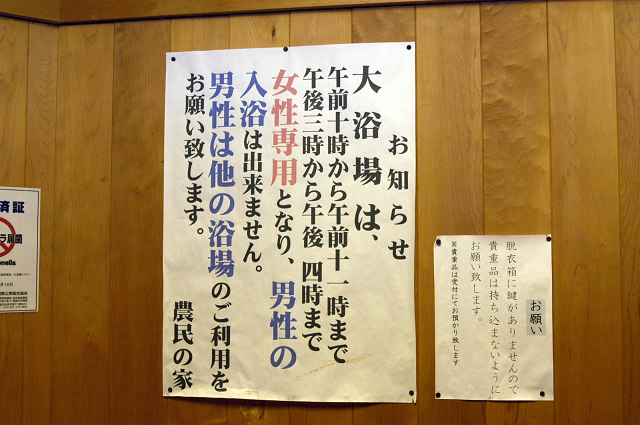 お知らせ
大浴場は、
午前十時から午前十一時まで
午後三時から午後 四時まで
女性専用となり、男性の
入浴は出来ません。
男性は他の浴場のご利用を
お願い致します。
農民の家
お願い
脱衣箱に鍵がありませんので
貴重品は持ち込まないように
お願い致します。
※貴重品は受付にてお預かり致します
済証
ラ属菌
nella